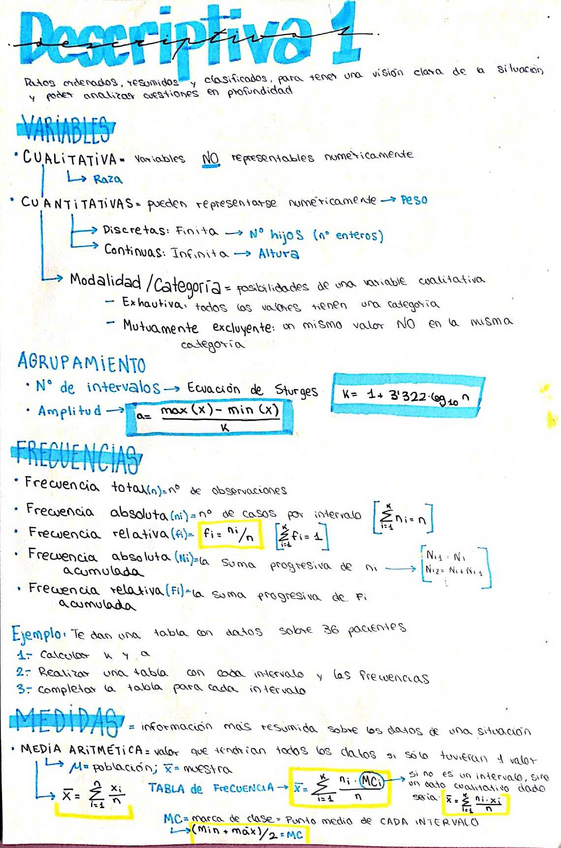 Descriptiva 1
descriptiva 1
Datos ordenados, resumidos y clasificados, para tener una visión clara de la situación
y poder analizar cuestiones en profundidad
VARIABLES
• CUALITATIVA = variables NO representables numéricamente
↳ Raza
• CUANTITATIVAS = pueden representarse numéricamente → Peso
→ Discretas: Finita → Nº hijos (nº enteros)
→ Continuas: Infinita → Altura
→ Modalidad / Categoría = posibilidades de una variable cualitativa
- Exhautiva: todos los valores tienen una categoría
- Mutuamente excluyente: un mismo valor NO en la misma
categoría
AGRUPAMIENTO
• Nº de intervalos → Ecuación de Sturges K = 1 + 3'322·log₁₀ n
• Amplitud → a = (max (x) - min (x)) / K
FRECUENCIAS
• Frecuencia total (n) = nº de observaciones
• Frecuencia absoluta (ni) = nº de casos por intervalo [Σ_{i=1}^{K} ni = n]
• Frecuencia relativa (fi) = fi = ni/n [Σ_{i=1}^{K} fi = 1]
• Frecuencia absoluta (Ni) = la suma progresiva de ni →
acumulada
• Frecuencia relativa (Fi) = la suma progresiva de Fi
acumulada
Ejemplo: Te dan una tabla con datos sobre 36 pacientes
1.- Calcular K y a
2.- Realizar una tabla con cada intervalo y las frecuencias
3.- Completar la tabla para cada intervalo
MEDIDAS = información más resumida sobre los datos de una situación
• MEDIA ARITMÉTICA = valor que tendrían todos los datos si sólo tuvieran 1 valor
↳ μ = población; x̄ = muestra
→ x̄ = Σ_{i=1}^{n} xi/n TABLA de FRECUENCIA → x̄ = Σ_{i=1}^{K} (ni · MCi)/n → si no es un intervalo, sino
un dato cualitativo dado
sería x̄ = Σ_{i=1}^{K} (ni·xi)/n
MC = marca de clase = Punto medio de CADA INTERVALO
↳ (min + máx)/2 = MC